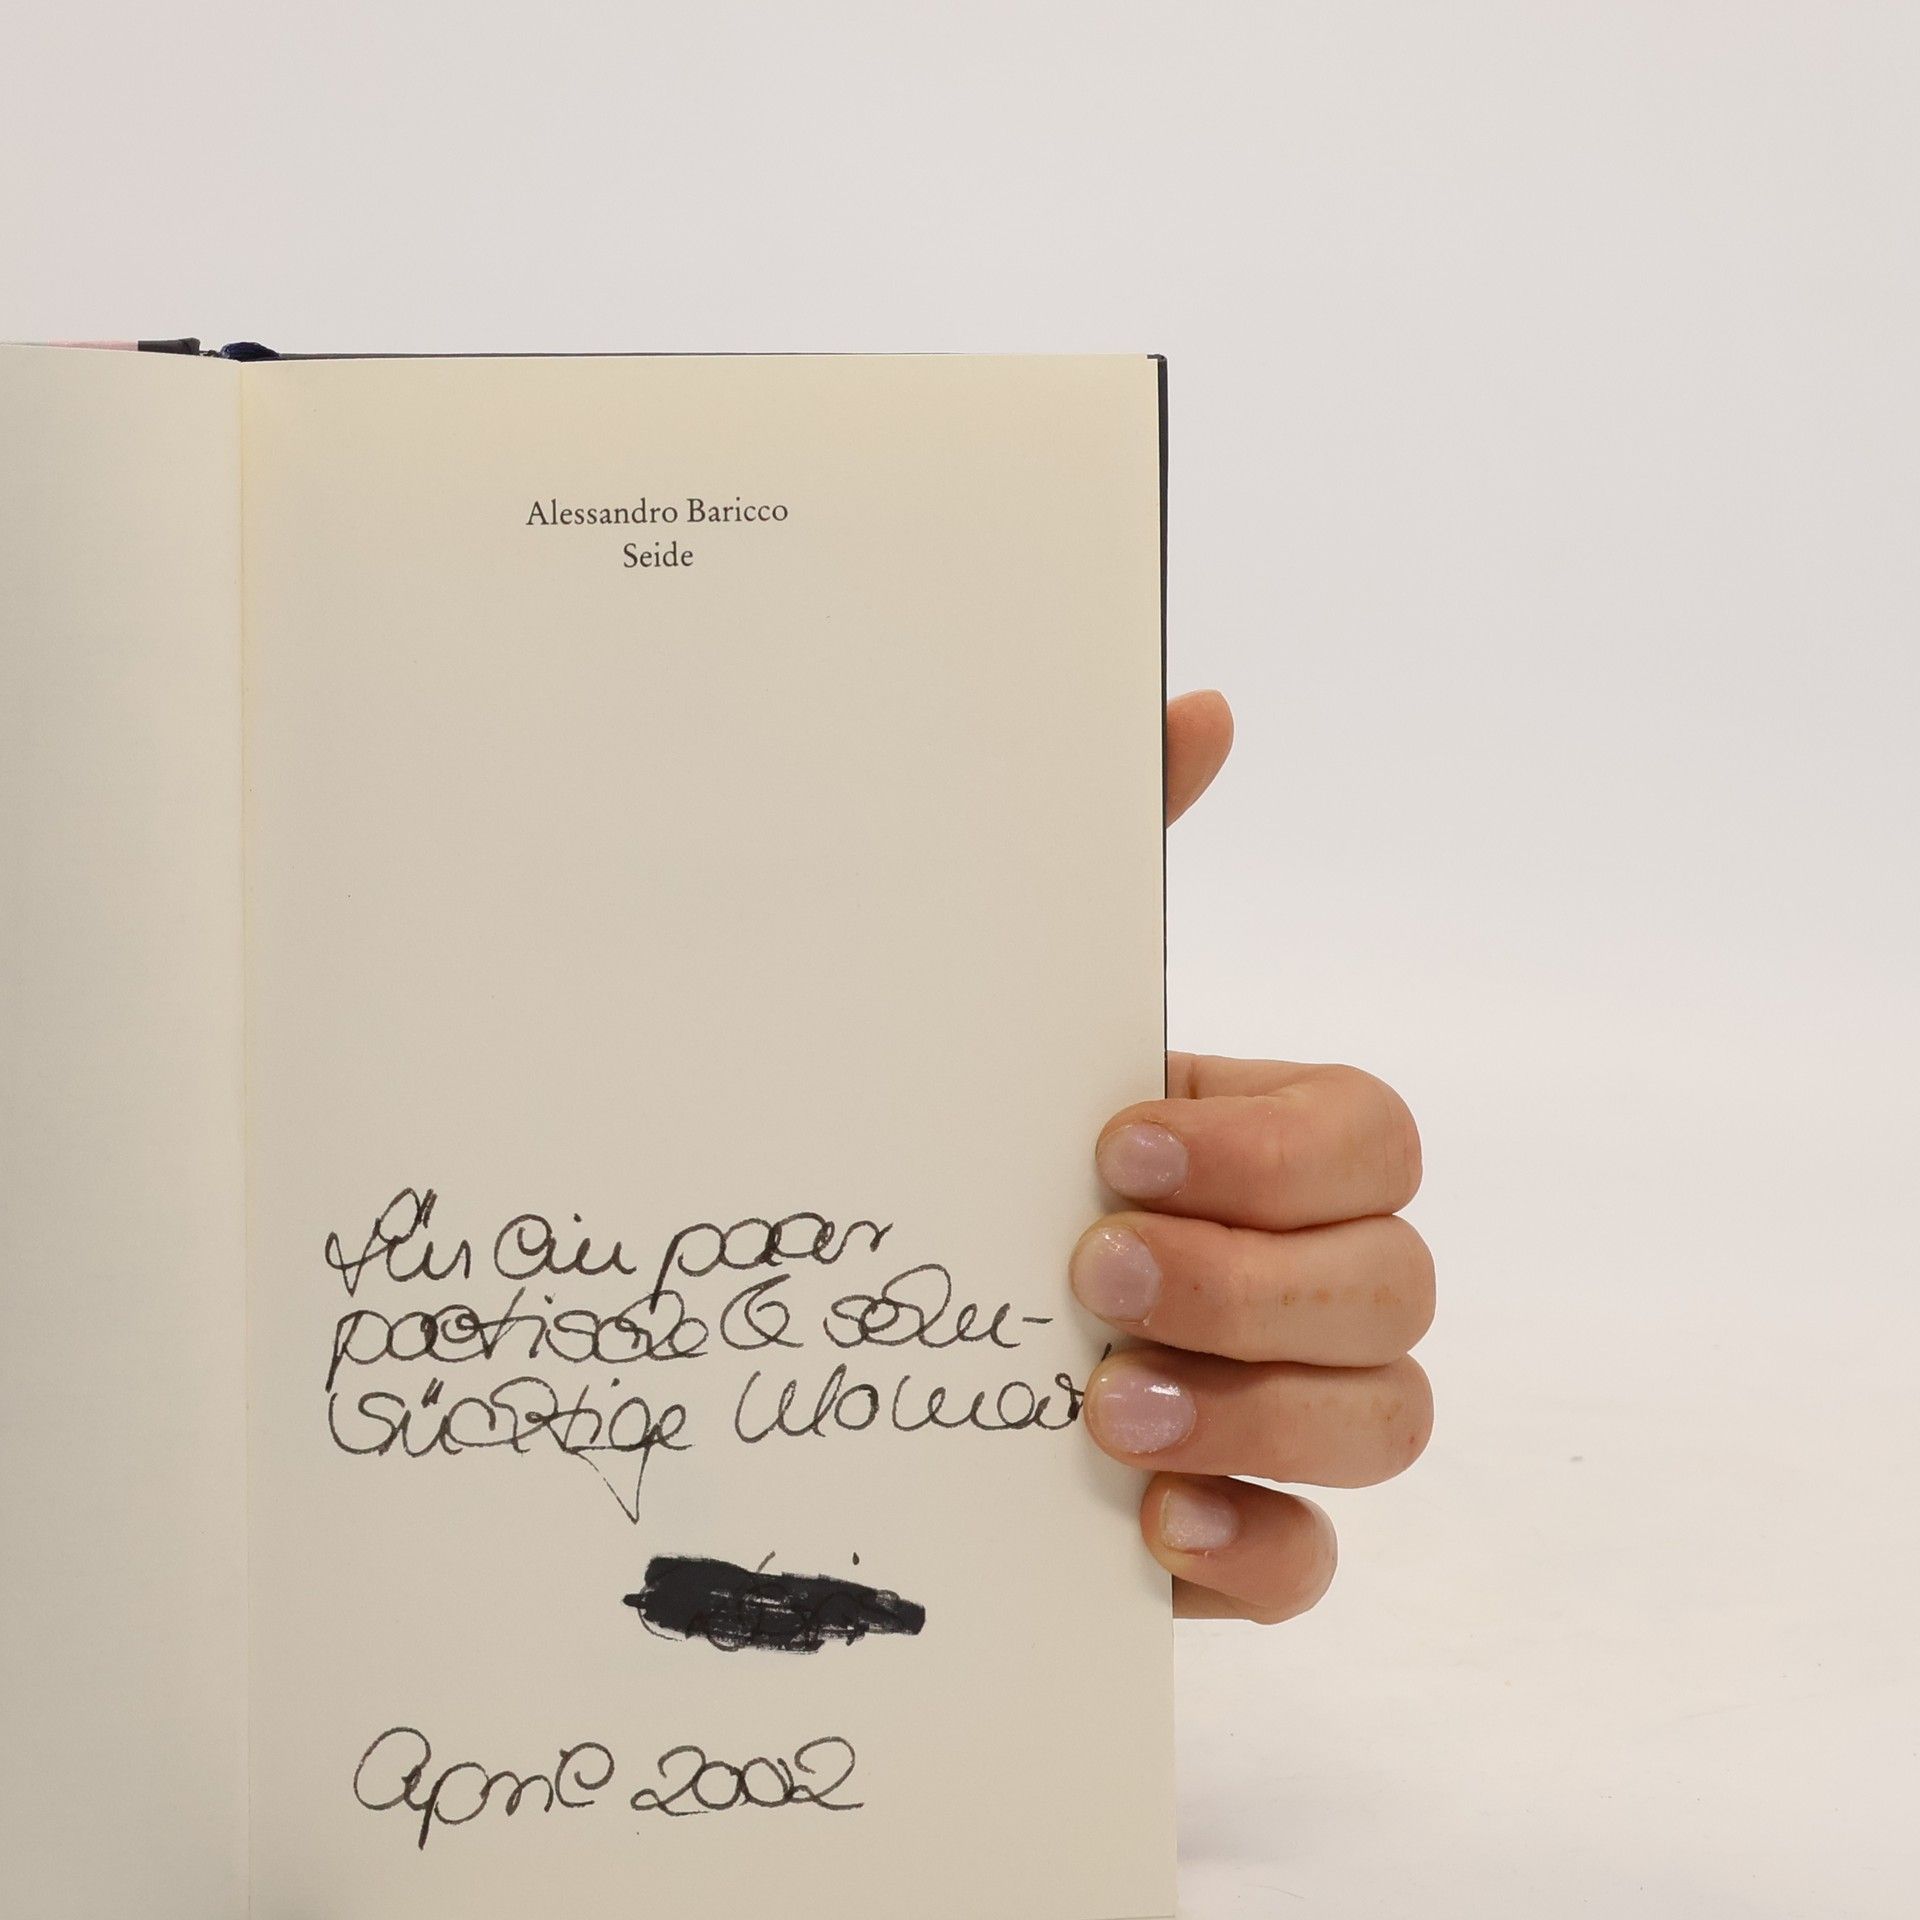 Alessandro Baricco
Seide
Für ein paar
poetische & sehn-
süchtige
April 2002